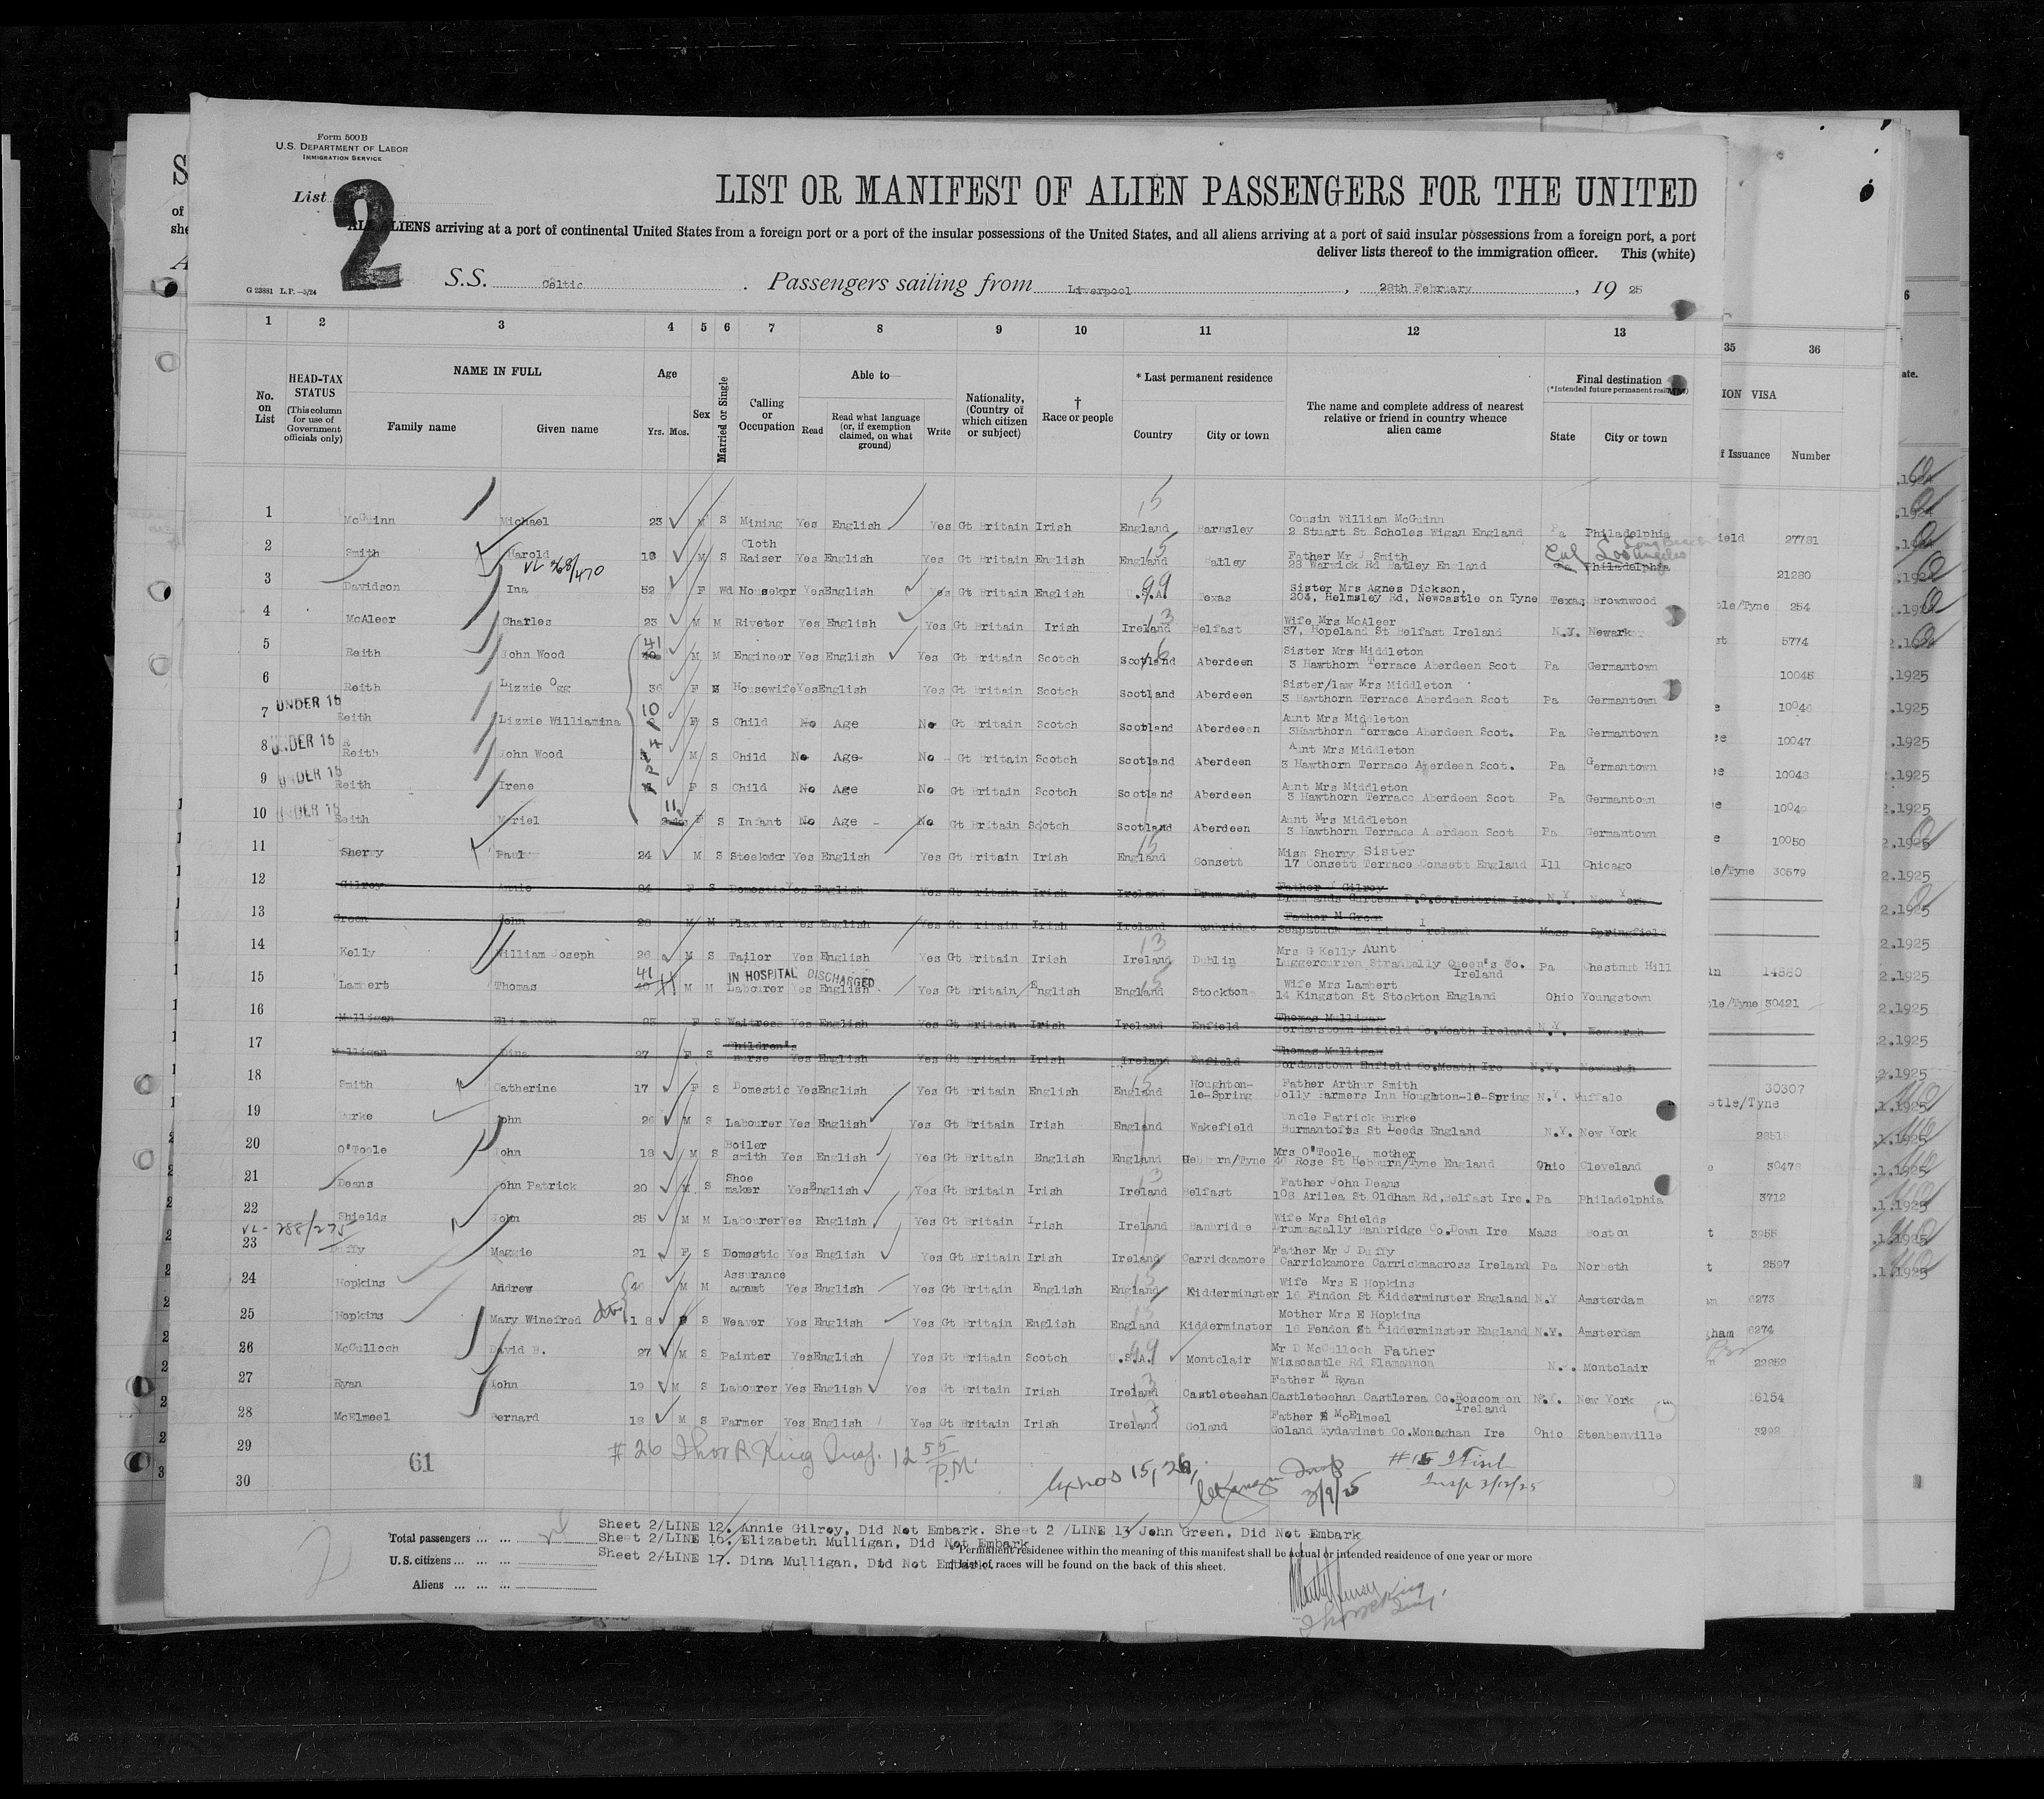 Form 500B
U.S. DEPARTMENT OF LABOR
IMMIGRATION SERVICE
List 2
LIST OR MANIFEST OF ALIEN PASSENGERS FOR THE UNITED
ALL ALIENS arriving at a port of continental United States from a foreign port or a port of the insular possessions of the United States, and all aliens arriving at a port of said insular possessions from a foreign port, a port
deliver lists thereof to the immigration officer. This (white)
G 23881 L.P.—5/24
S.S. Celtic . Passengers sailing from Liverpool , 28th February , 19 25
1 2 3 4 5 6 7 8 9 10 11 12 13
35 36
No. on List
HEAD-TAX STATUS (This column for use of Government officials only)
NAME IN FULL
Family name Given name
Age Yrs. Mos.
Sex
Married or Single
Calling or Occupation
Able to
Read Read what language (or, if exemption claimed, on what ground) Write
Nationality, (Country of which citizen or subject)
† Race or people
* Last permanent residence
Country City or town
The name and complete address of nearest relative or friend in country whence alien came
Final destination
(*Intended future permanent residence)
State City or town
ION VISA
f Issuance Number
1 McGuinn Michael 23 M S Mining Yes English Yes Gt Britain Irish England Barnsley Cousin William McGuinn
2 Stuart St Scholes Wigan England Pa Philadelphia 27781
2 Smith Harold 18 M S Cloth Raiser Yes English Yes Gt Britain English England Batley Father Mr J Smith
28 Warwick Rd Batley England Cal Los Angeles Long Beach Philadelphia 21280
VL 368/470
3 Davidson Ina 52 F Wd Housekpr Yes English Yes Gt Britain English U.S.A. Texas Sister Mrs Agnes Dickson,
204, Helmsley Rd, Newcastle on Tyne Texas Brownwood 254
4 McAleer Charles 23 M M Riveter Yes English Yes Gt Britain Irish Ireland Belfast Wife Mrs McAleer
37, Hopeland St Belfast Ireland N.J. Newark 5774
5 Reith John Wood 41 M M Engineer Yes English Yes Gt Britain Scotch Scotland Aberdeen Sister Mrs Middleton
3 Hawthorn Terrace Aberdeen Scot Pa Germantown 10045
6 Reith Lizzie Ogg 36 F M Housewife Yes English Yes Gt Britain Scotch Scotland Aberdeen Sister/law Mrs Middleton
3 Hawthorn Terrace Aberdeen Scot Pa Germantown 10046
7 UNDER 16 Reith Lizzie Williamina 10 F S Child No Age No Gt Britain Scotch Scotland Aberdeen Aunt Mrs Middleton
3Hawthorn Terrace Aberdeen Scot. Pa Germantown 10047
8 UNDER 16 Reith John Wood M S Child No Age No Gt Britain Scotch Scotland Aberdeen Aunt Mrs Middleton
3 Hawthorn Terrace Aberdeen Scot. Pa Germantown 10048
9 UNDER 16 Reith Irene F S Child No Age No Gt Britain Scotch Scotland Aberdeen Aunt Mrs Middleton
3 Hawthorn Terrace Aberdeen Scot Pa Germantown 10049
10 UNDER 16 Reith Muriel 11 F S Infant No Age No Gt Britain Scotch Scotland Aberdeen Aunt Mrs Middleton
3 Hawthorn Terrace Aberdeen Scot Pa Germantown 10050
11 Sherry Paul 24 M S Steelwkr Yes English Yes Gt Britain Irish England Consett Miss Sherry Sister
17 Consett Terrace Consett England Ill Chicago 30579
12 Gilroy Annie 24 F S Domestic Yes English Yes Gt Britain Irish Ireland Drummands Father J Gilroy
Co.Leitrim Ire. N.Y. New York
13 Green John 28 M M Flax wkr Yes English Yes Gt Britain Irish Ireland Banbridge Father M Green
Seapatrick Banbridge Ireland Mass Springfield
14 Kelly William Joseph 26 M S Tailor Yes English Yes Gt Britain Irish Ireland Dublin Mrs G Kelly Aunt
Luggercurren Stradbally Queen's Co. Ireland Pa Chestnut Hill 14880
15 Lambert Thomas 41 M M Labourer Yes English Yes Gt Britain English England Stockton Wife Mrs Lambert
IN HOSPITAL DISCHARGED
14 Kingston St Stockton England Ohio Youngstown 30421
16 Mulligan Elizabeth 23 F S Waitress Yes English Yes Gt Britain Irish Ireland Enfield Thomas Mulligan
Jordanstown Enfield Co.Meath Ireland N.Y. Newburgh
17 Mulligan Dina 27 F S Children's nurse Yes English Yes Gt Britain Irish Ireland Enfield Thomas Mulligan
Jordanstown Enfield Co.Meath Ire N.Y. Newburgh
18 Smith Catherine 17 F S Domestic Yes English Yes Gt Britain English England Houghton-le-Spring Father Arthur Smith
Jolly Farmers Inn Houghton-le-Spring N.Y. Buffalo 30307
19 Burke John 26 M S Labourer Yes English Yes Gt Britain Irish England Wakefield Uncle Patrick Burke
Burmantofts St Leeds England N.Y. New York
20 O'Toole John 18 M S Boiler smith Yes English Yes Gt Britain English England Hebburn/Tyne Mrs O'Toole mother
46 Rose St Hebburn/Tyne England Ohio Cleveland 30478
21 Deans John Patrick 20 M S Shoe maker Yes English Yes Gt Britain Irish Ireland Belfast Father John Deans
108 Arilea St Oldham Rd,Belfast Ire. Pa Philadelphia 3712
22 Shields John 25 M M Labourer Yes English Yes Gt Britain Irish Ireland Banbridge Wife Mrs Shields
Drumnagally Banbridge Co.Down Ire Mass Boston
VL-288/275
23 Duffy Maggie 21 F S Domestic Yes English Yes Gt Britain Irish Ireland Carrickamore Father Mr J Duffy
Carrickamore Carrickmacross Ireland Pa Norbeth 2597
24 Hopkins Andrew 46 M M Assurance agent Yes English Yes Gt Britain English England Kidderminster Wife Mrs E Hopkins
16 Findon St Kidderminster England N.Y Amsterdam 6273
25 Hopkins Mary Winefred 18 S Weaver Yes English Yes Gt Britain English England Kidderminster Mother Mrs E Hopkins
16 Fendon St Kidderminster England N.Y. Amsterdam 6274
26 McCulloch David B. 27 M S Painter Yes English Yes Gt Britain Scotch U.S.A. Montclair Mr D McCulloch Father
Wisscastle Rd Slamannon Montclair
27 Ryan John 19 M S Labourer Yes English Yes Gt Britain Irish Ireland Castleteehan Father M Ryan
Castleteehan Castlerea Co.Roscommon Ireland N.Y. New York 16154
28 McElmeel Bernard 18 M S Farmer Yes English Yes Gt Britain Irish Ireland Goland Father McElmeel
Goland Tydavinet Co.Monaghan Ire Ohio Stenbenville 3292
29
30
61
#26 Thos R King Insp. 12 55 P.M.
15, 26,
Insp 3/9/25
#15
Insp 3/12/25
Total passengers
U.S. citizens
Aliens
Sheet 2/LINE 12. Annie Gilroy, Did Not Embark. Sheet 2 /LINE 13 John Green, Did Not Embark
Sheet 2/LINE 16. Elizabeth Mulligan, Did Not Embark
Sheet 2/LINE 17. Dina Mulligan, Did Not Embark.
* Permanent residence within the meaning of this manifest shall be actual or intended residence of one year or more
† List of races will be found on the back of this sheet.